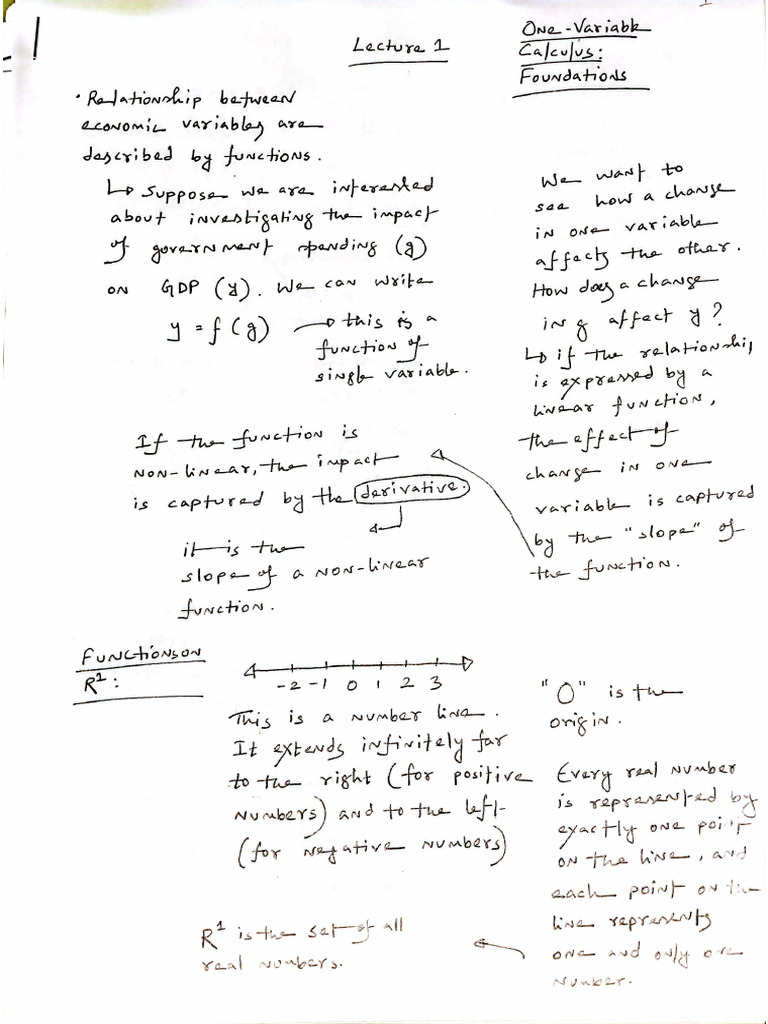 1
Lecture 1
One-Variable
Calculus:
Foundations
• Relationship between
economic variables are
described by functions.
↳ Suppose we are interested
about investigating the impact
of government spending (g)
on GDP (y). We can write
y = f(g) → this is a
function of
single variable.
We want to
see how a change
in one variable
affects the other.
How does a change
in g affect y?
↳ if the relationship
is expressed by a
linear function,
the effect of
change in one
variable is captured
by the "slope" of
the function.
If the function is
non-linear, the impact
is captured by the derivative.
it is the
slope of a non-linear
function.
Functions on
R¹:
-2 -1 0 1 2 3
This is a number line.
It extends infinitely far
to the right (for positive
numbers) and to the left
(for negative numbers)
"0" is the
origin.
Every real number
is represented by
exactly one point
on the line, and
each point on the
line represents
one and only one
number.
R¹ is the set of all
real numbers.